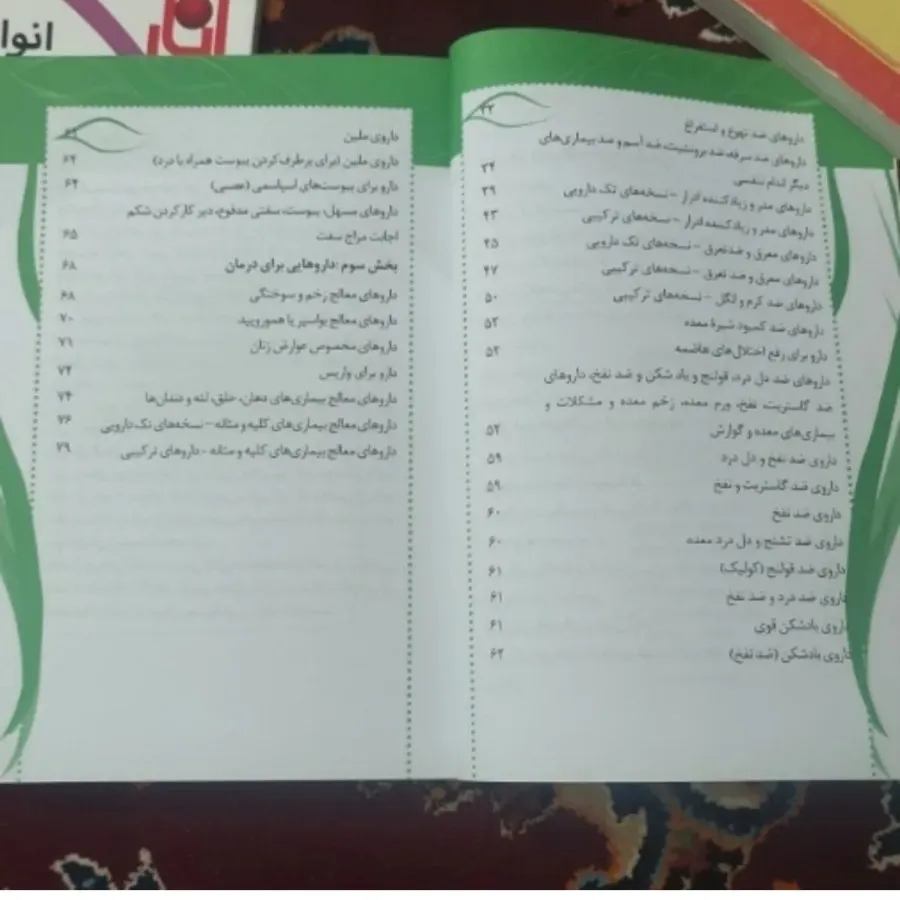 انوا
انار
داروهای ضد تهوع و استفراغ ۳۲
داروهای ضد سرفه، ضد برونشیت، ضد آسم و ضد بیماری‌های
دیگر اندام تنفسی ۳۴
داروهای مدر و زیادکننده ادرار – نسخه‌های تک دارویی ۳۹
داروهای مدر و زیادکننده ادرار – نسخه‌های ترکیبی ۴۳
داروهای معرق و ضدتعرق – نسخه‌های تک دارویی ۴۵
داروهای معرق و ضد تعرق – نسخه‌های ترکیبی ۴۷
داروهای ضد کرم و انگل – نسخه‌های ترکیبی ۵۰
داروهای ضد کمبود شیرهٔ معده ۵۲
دارو برای رفع اختلال‌های هاضمه ۵۲
داروهای ضد دل درد، قولنج و بادشکن و ضد نفخ، داروهای
ضد گاستریت، نفخ، ورم معده، زخم معده و مشکلات و
بیماری‌های معده و گوارش ۵۲
داروی ضد نفخ و دل درد ۵۹
داروی ضد گاستریت و نفخ ۵۹
داروی ضد نفخ ۶۰
داروی ضد تشنج و دل درد معده ۶۰
داروی ضد قولنج (کولیک) ۶۱
داروی ضد درد و ضد نفخ ۶۱
داروی بادشکن قوی ۶۱
داروی بادشکن (ضد نفخ) ۶۲
داروی ملین
داروی ملین (برای برطرف کردن یبوست همراه با درد) ۶۴
دارو برای یبوست‌های اسپاسمی (عصبی) ۶۴
داروهای مسهل، یبوست، سفتی مدفوع، دیر کار کردن شکم
اجابت مزاج سفت ۶۵
بخش سوم :داروهایی برای درمان ۶۸
داروهای معالج زخم و سوختگی ۶۸
داروهای معالج بواسیر یا هموروئید ۷۰
داروهای مخصوص عوارض زنان ۷۱
دارو برای واریس ۷۴
داروهای معالج بیماری‌های دهان، حلق، لثه و دندان‌ها ۷۴
داروهای معالج بیماری‌های کلیه و مثانه – نسخه‌های تک دارویی ۷۶
داروهای معالج بیماری‌های کلیه و مثانه - داروهای ترکیبی ۷۹